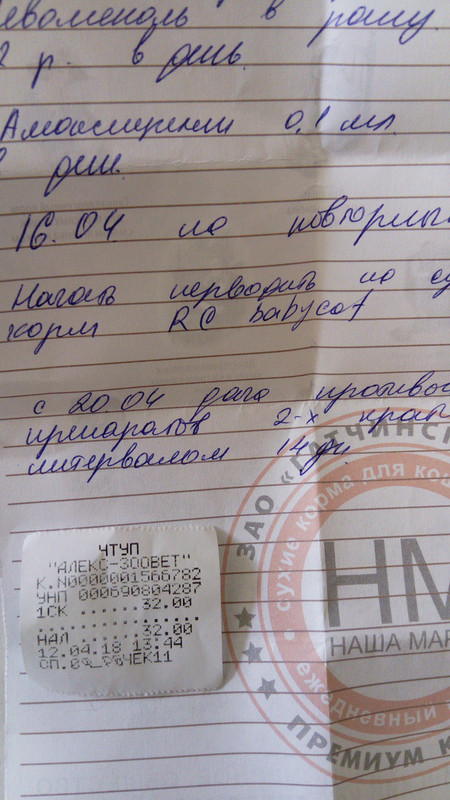 в рану
2 р. в день.
0,1 мл
дни.
16.04 на повторный
Начать переводить на су
корм RC babycat
с 20.04 дача противо
препаратов 2-х крат
интервалом 14 дн
ЧТУП
"АЛЕКС-ЗООВЕТ"
К.N0000001566782
УНП 000690804287
1СК ......32.00
................
НАЛ ......32.00
12.04.18 13:44
ЧЕК11
ЗАО «ГАТЧИНСК
сухие корма для кош
НМ
НАША МАР
ежедневный
ПРЕМИУМ К